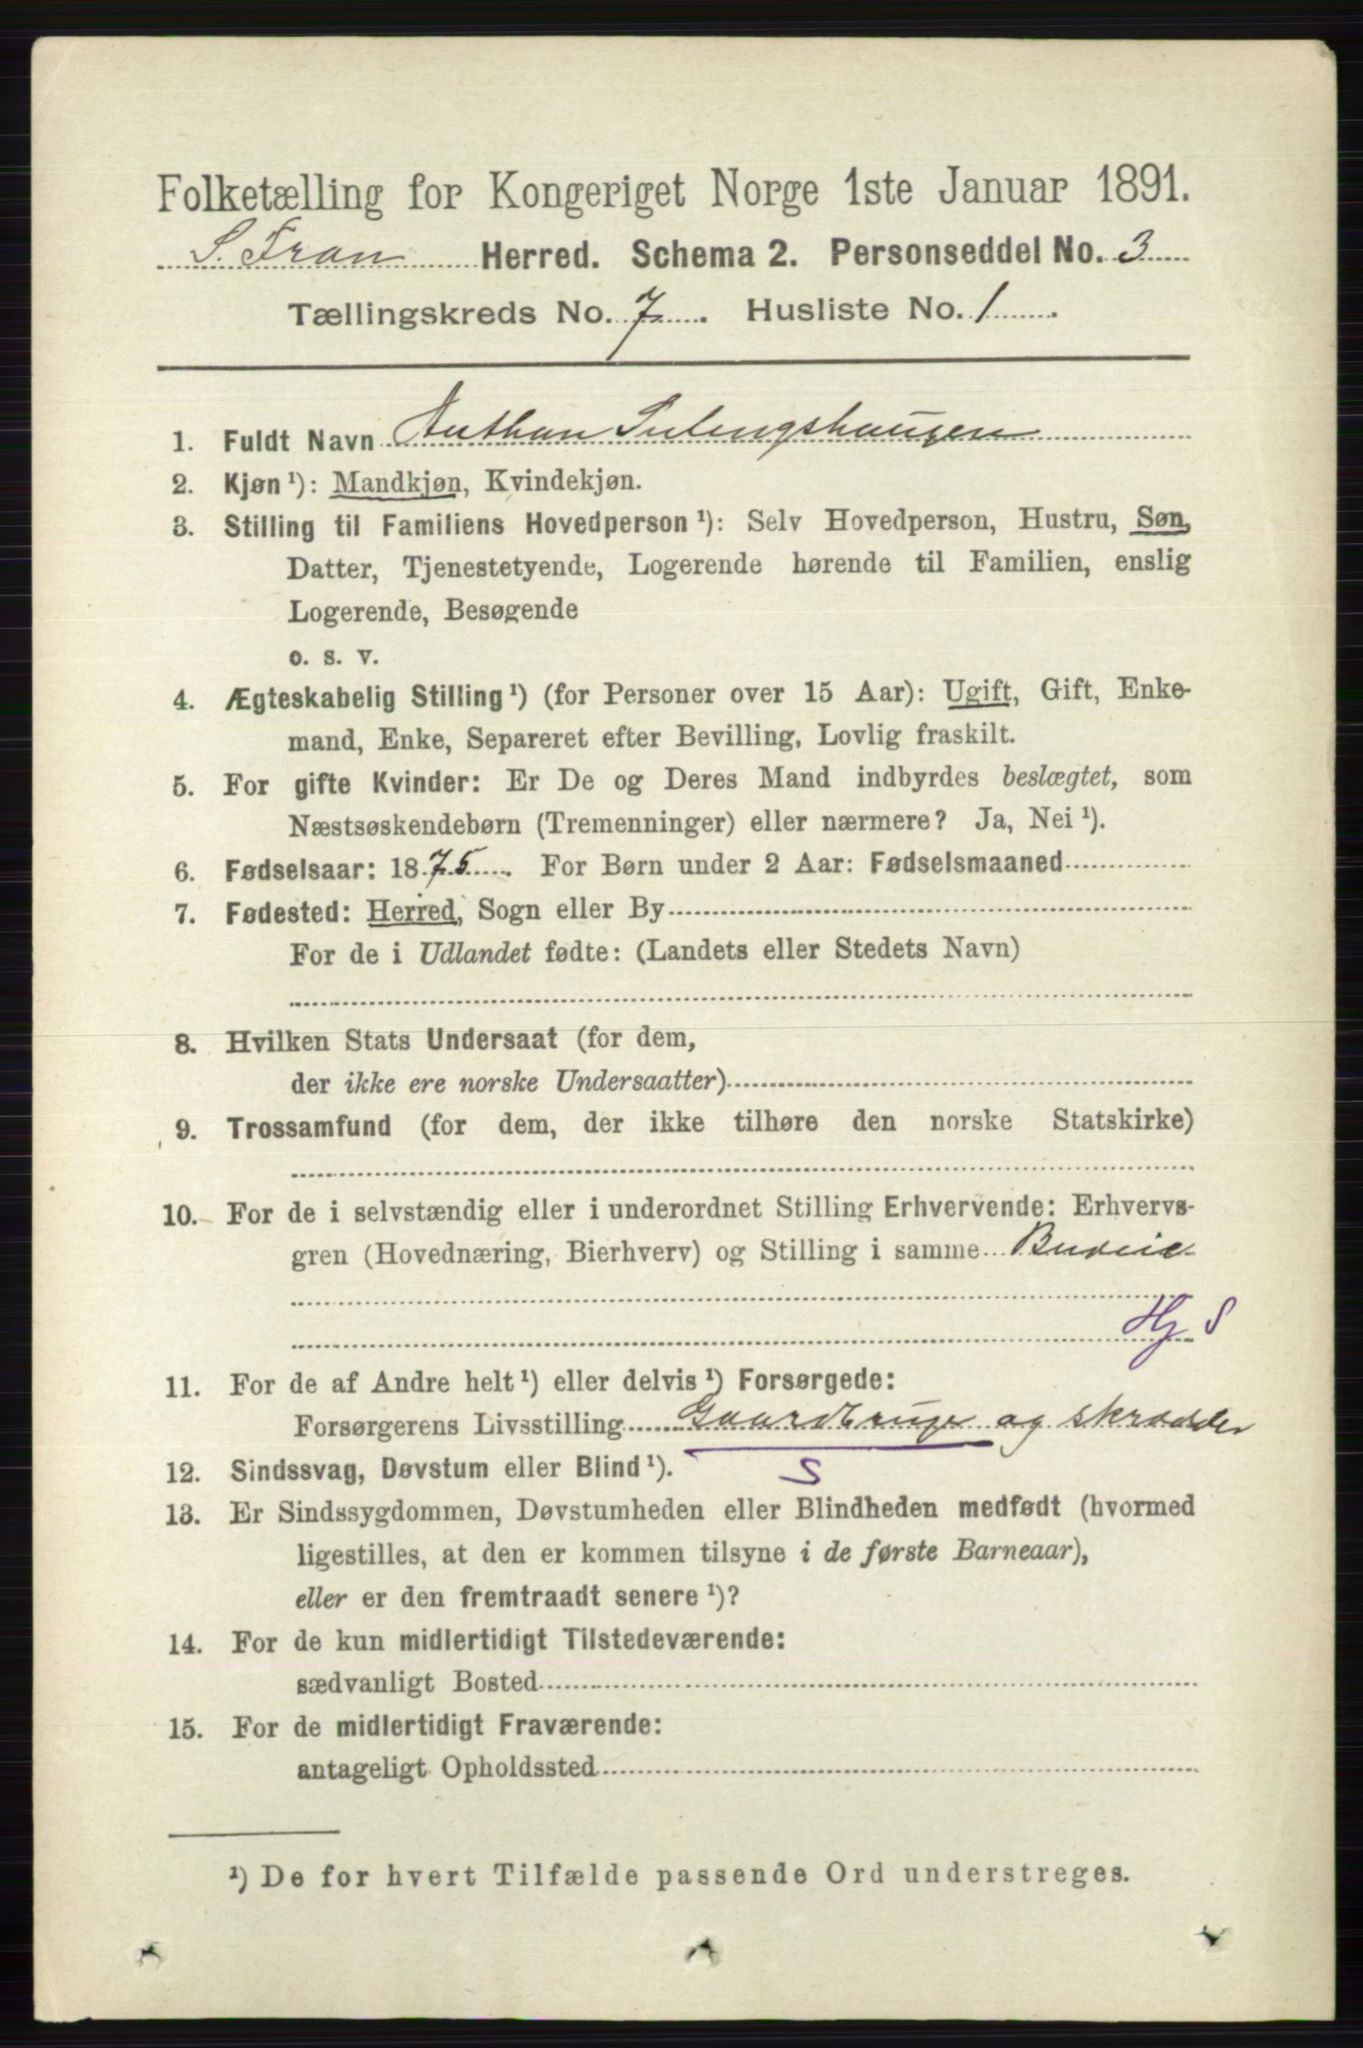 Folketælling for Kongeriget Norge 1ste Januar 1891.
S. Fron Herred. Schema 2. Personseddel No. 3
Tællingskreds No. 7. Husliste No. 1.
1. Fuldt Navn
2. Kjøn ¹): Mandkjøn, Kvindekjøn.
3. Stilling til Familiens Hovedperson ¹): Selv Hovedperson, Hustru, Søn,
Datter, Tjenestetyende, Logerende hørende til Familien, enslig
Logerende, Besøgende
o. s. v.
4. Ægteskabelig Stilling ¹) (for Personer over 15 Aar): Ugift, Gift, Enke-
mand, Enke, Separeret efter Bevilling, Lovlig fraskilt.
5. For gifte Kvinder: Er De og Deres Mand indbyrdes beslægtet, som
Næstsøskendebørn (Tremenninger) eller nærmere? Ja, Nei ¹).
6. Fødselsaar: 1875. For Børn under 2 Aar: Fødselsmaaned
7. Fødested: Herred, Sogn eller By
For de i Udlandet fødte: (Landets eller Stedets Navn)
8. Hvilken Stats Undersaat (for dem,
der ikke ere norske Undersaatter)
9. Trossamfund (for dem, der ikke tilhøre den norske Statskirke)
10. For de i selvstændig eller i underordnet Stilling Erhvervende: Erhvervs-
gren (Hovednæring, Bierhverv) og Stilling i samme Budeie
Hj S
11. For de af Andre helt ¹) eller delvis ¹) Forsørgede:
Forsørgerens Livsstilling Gaardbruger og skrædder
12. Sindssvag, Døvstum eller Blind ¹). S
13. Er Sindssygdommen, Døvstumheden eller Blindheden medfødt (hvormed
ligestilles, at den er kommen tilsyne i de første Barneaar),
eller er den fremtraadt senere ¹)?
14. For de kun midlertidigt Tilstedeværende:
sædvanligt Bosted
15. For de midlertidigt Fraværende:
antageligt Opholdssted
¹) De for hvert Tilfælde passende Ord understreges.